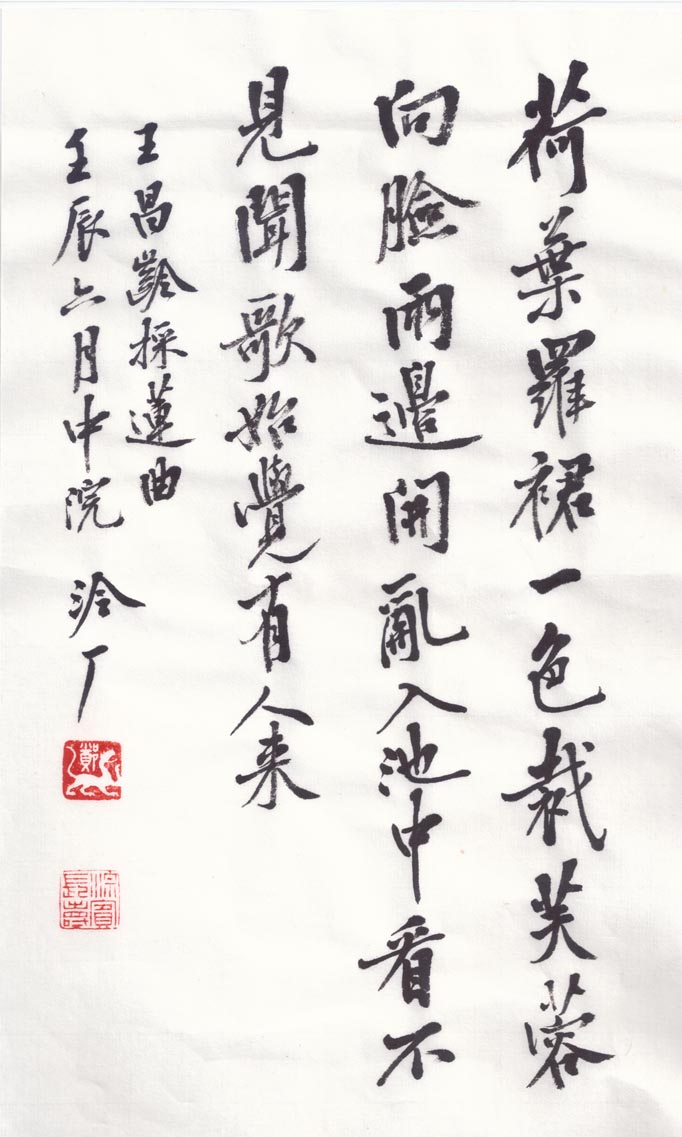 荷葉羅裙一色裁芙蓉
向臉兩邊開亂入池中看不
見聞歌始覺有人来
王昌齡採蓮曲
壬辰六月中浣 厂